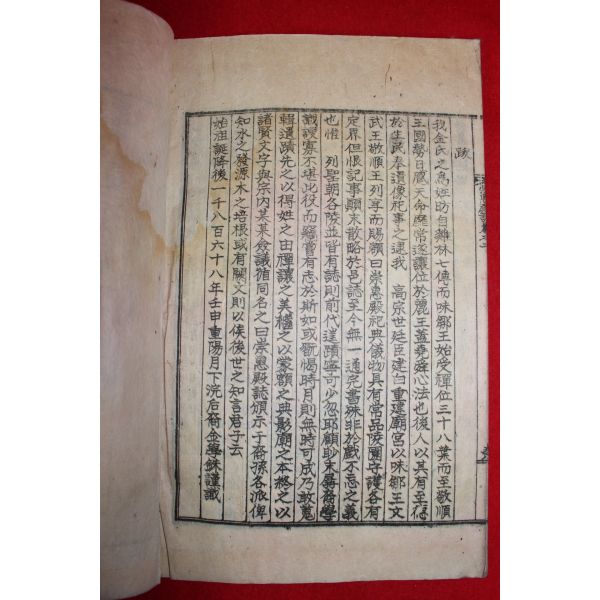 跋
我金氏之爲姓昉自雞林七傳而味鄒王始受禪位三十八葉而至敬順
王國勢日蹙天命靡常遂讓位於麗王蓋堯舜心法也後人以其有至德
於生民奉遺像祀事之逮我 高宗世廷臣建白重建廟宮以味鄒王文
武王敬順王列享而賜額曰崇惠殿祀典儀物具有常品陵園守護各有
定界但恨記事顚末散略於邑誌至今無一通完書殊非於戱不忘之義
也惟 列聖朝各陵並皆有誌則前代遺蹟寧可少忽耶顧眇末孱裔學
識謏寡不堪此役而竊嘗有志於斯如或翫愒時月則無時可成乃敢蒐
輯遺蹟先之以得姓之由禪讓之美繼之以蒙額之典影廟之本終之以
諸賢文字與宗內某某僉議循同名之曰崇惠殿誌頒示于裔孫各派俾
知水之發源木之培根或有闕文則以俟後世之知言君子云
始祖誕降後一千八百六十八年壬申重陽月下浣后裔金學銖謹識